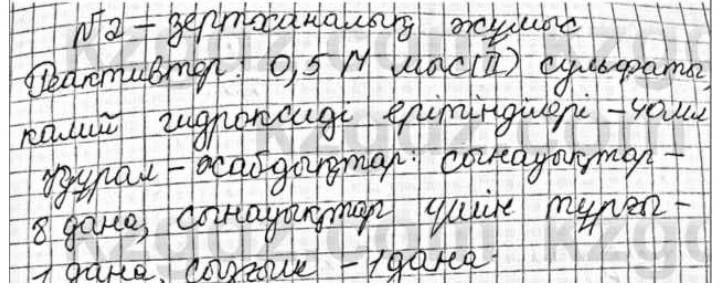 №2 – зертханалық жұмыс
Реактивтер: 0,5 М мыс(II) сульфаты,
калий гидроксиді ерітінділері – 40мл
Құрал – жабдықтар: сынауықтар –
8 дана, сынауықтар үшін тұрғы –
1 дана, сызғыш – 1 дана.